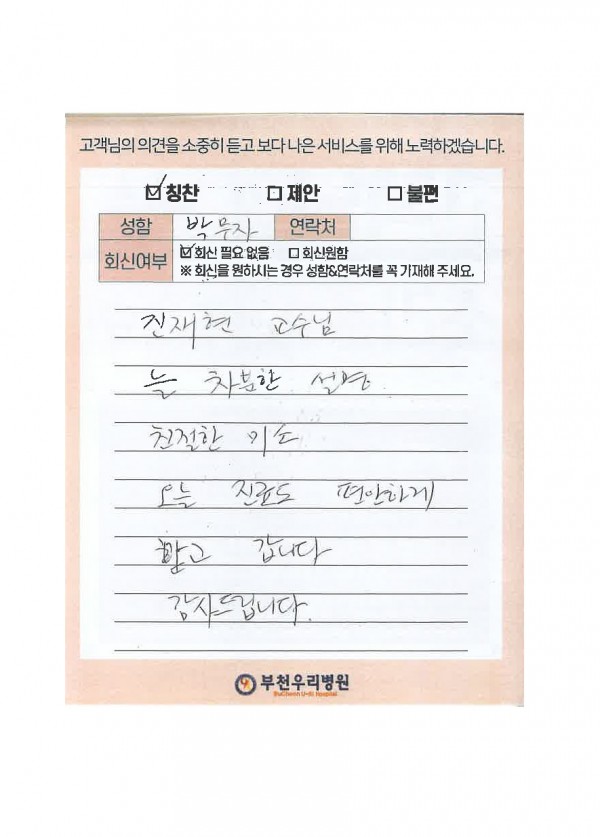 고객님의 의견을 소중히 듣고 보다 나은 서비스를 위해 노력하겠습니다.
☑ 칭찬 ☐ 제안 ☐ 불편
성함 박무자 연락처
회신여부 ☑ 회신 필요 없음 ☐ 회신원함
※ 회신을 원하시는 경우 성함&연락처를 꼭 기재해 주세요.
진재현 교수님
늘 차분한 설명
친절한 미소
오늘 진료도 편안하게
받고 갑니다
감사드립니다.
부천우리병원
BuCheon U-Ri Hospital